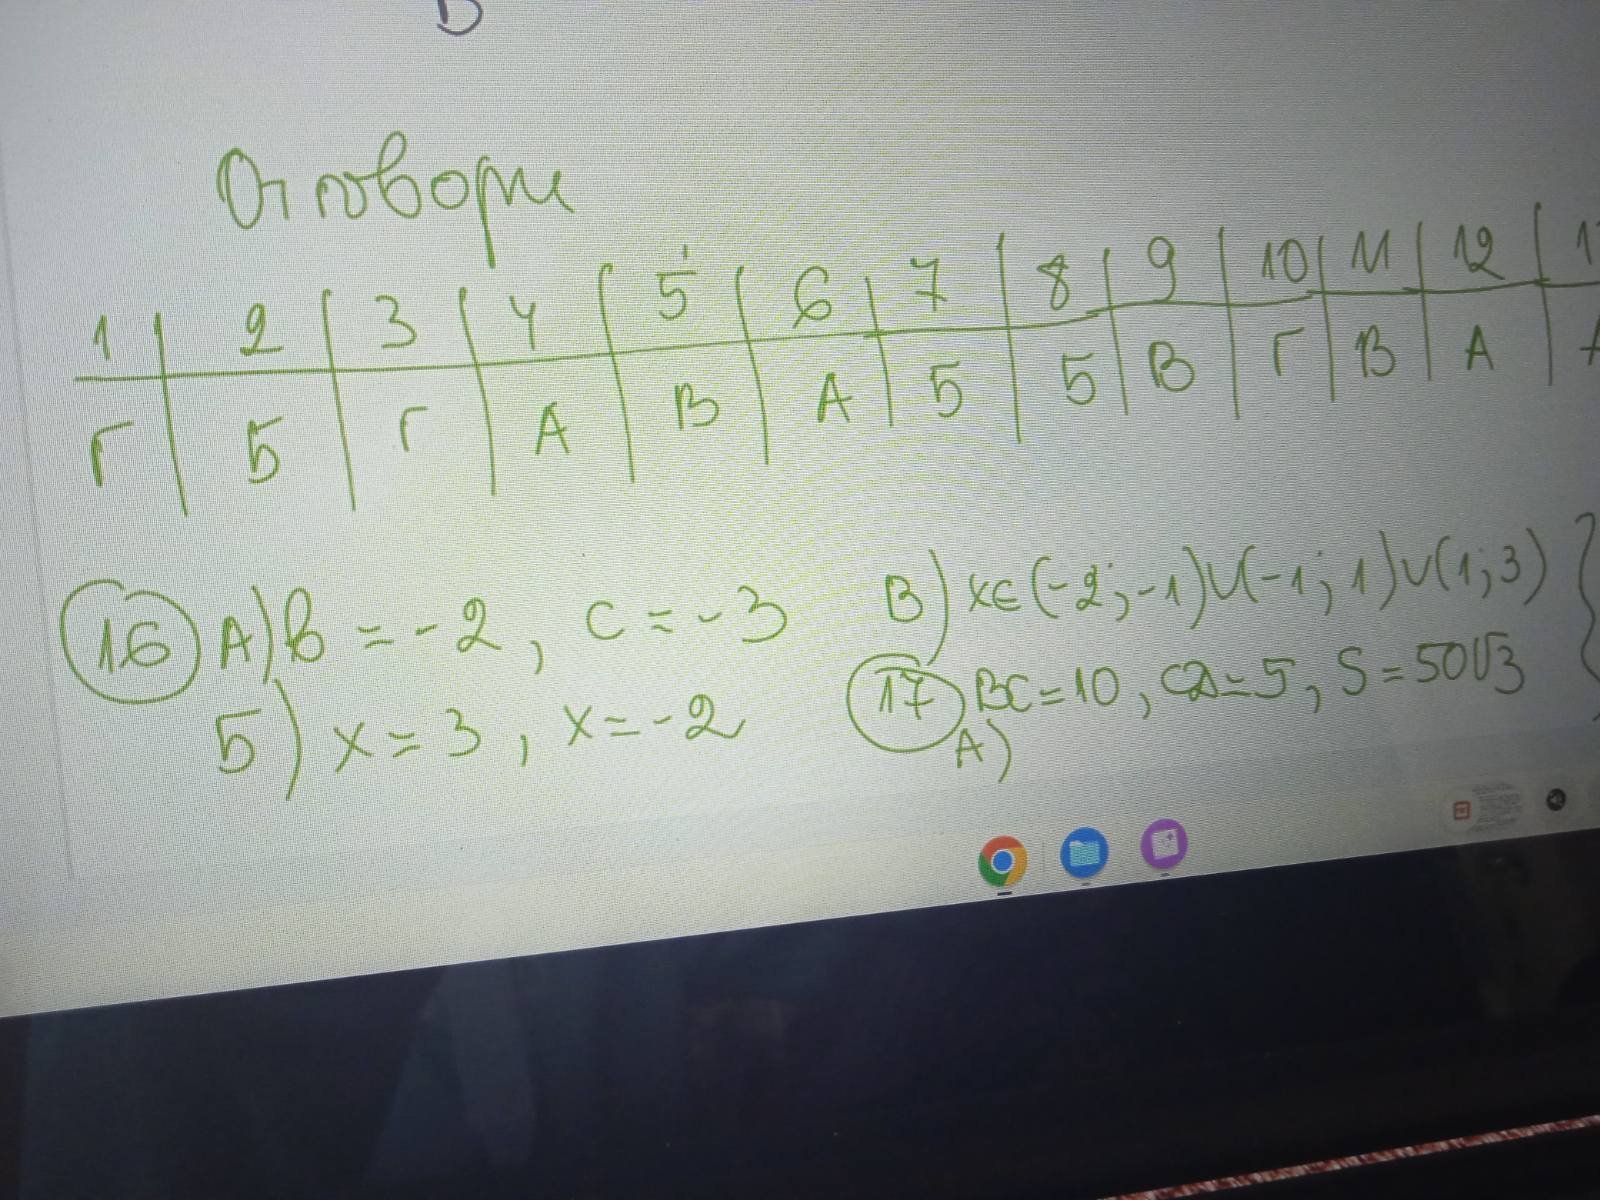 Отговори
1 | 2 | 3 | 4 | 5 | 6 | 7 | 8 | 9 | 10 | 11 | 12
Г | Б | Г | А | В | А | Б | Б | В | Г | В | А | А
16 А) B = -2, C = -3
Б) x = 3, x = -2
В) x∈(-2;-1)∪(-1;1)∪(1;3)
17 BC=10, CD=5, S=50√3
А)